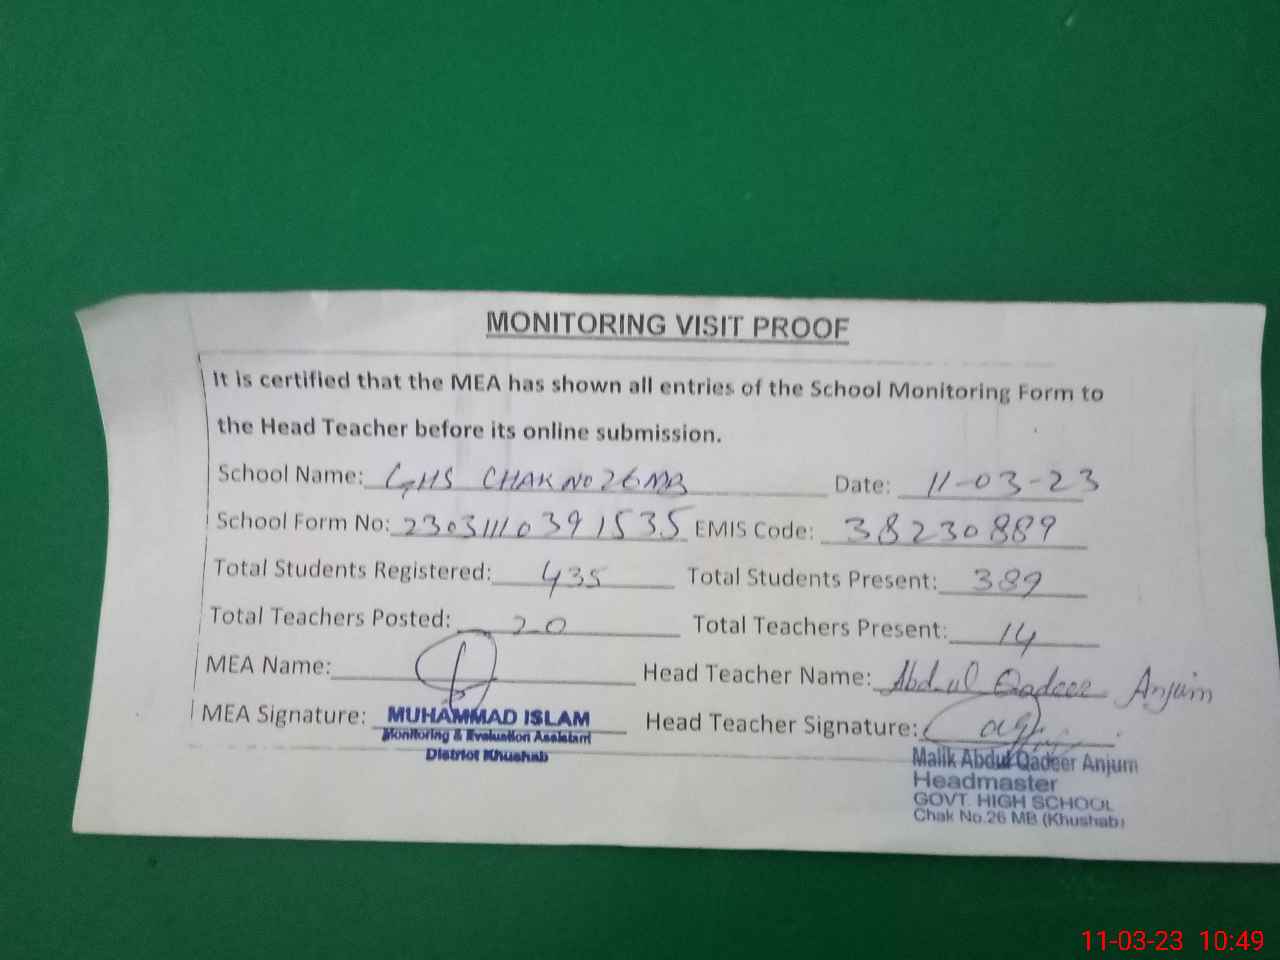 MONITORING VISIT PROOF
It is certified that the MEA has shown all entries of the School Monitoring Form to
the Head Teacher before its online submission.
School Name: GHS CHAK NO 26 MB Date: 11-03-23
School Form No: 23031110391535 EMIS Code: 38230889
Total Students Registered: 435 Total Students Present: 389
Total Teachers Posted: 20 Total Teachers Present: 14
MEA Name: Head Teacher Name: Abdul Qadeer Anjum
MEA Signature: Head Teacher Signature:
MUHAMMAD ISLAM
Monitoring & Evaluation Assistant
District Khushab
Malik Abdul Qadeer Anjum
Headmaster
GOVT. HIGH SCHOOL
Chak No.26 MB (Khushab)
11-03-23 10:49